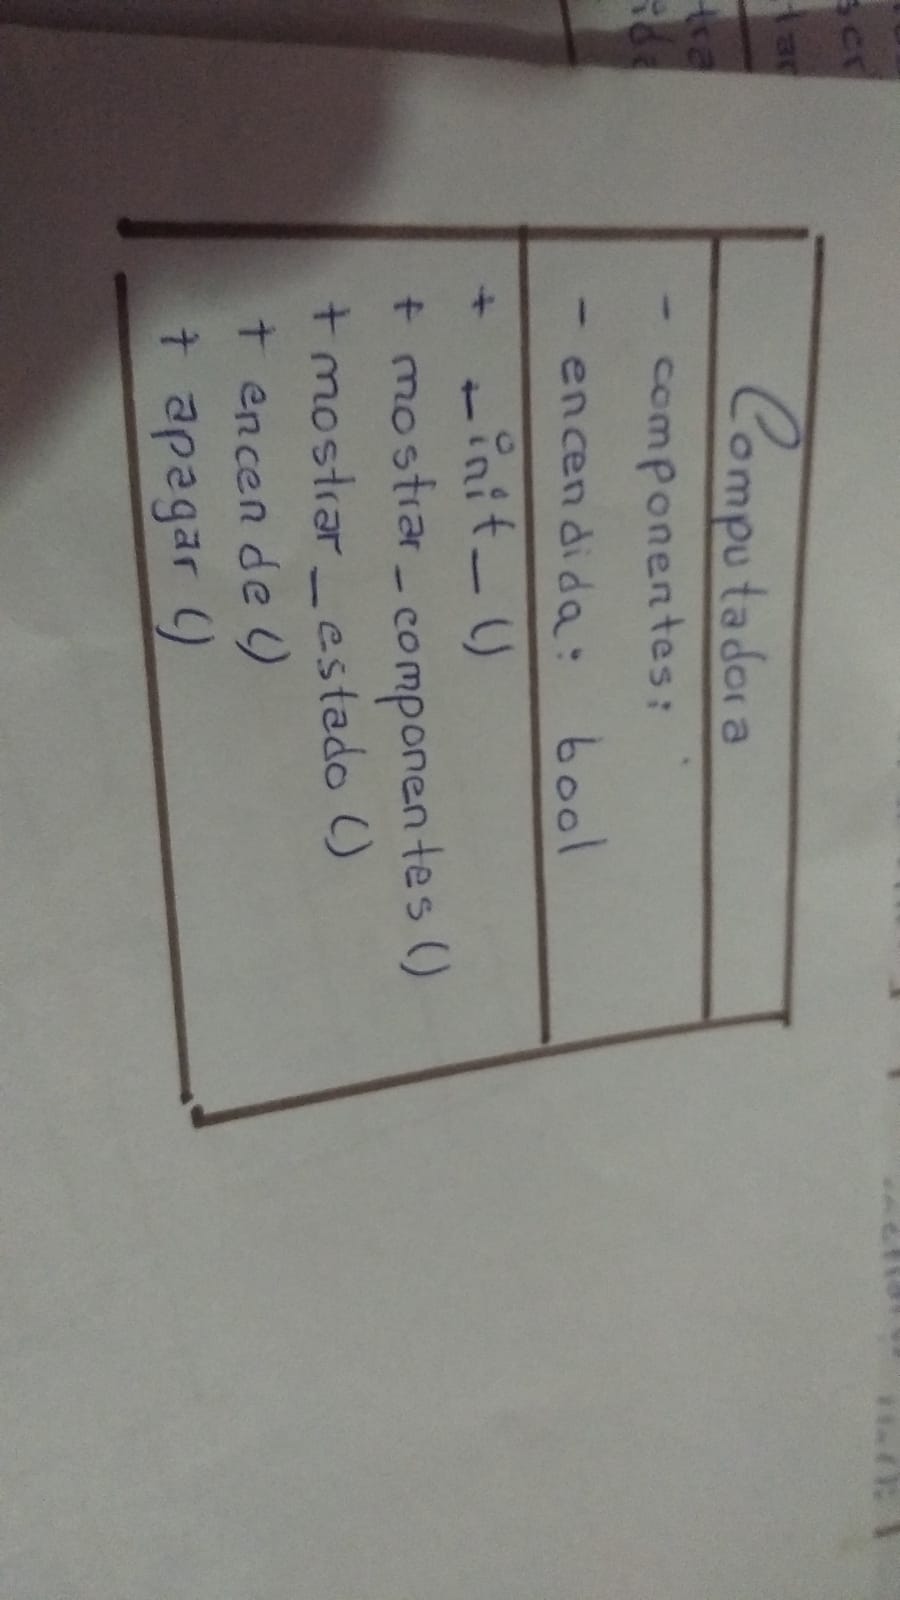 Computadora
- componentes:
- encendida: bool
+ _init_()
+ mostrar_componentes()
+ mostrar_estado()
+ encende()
+ apagar()